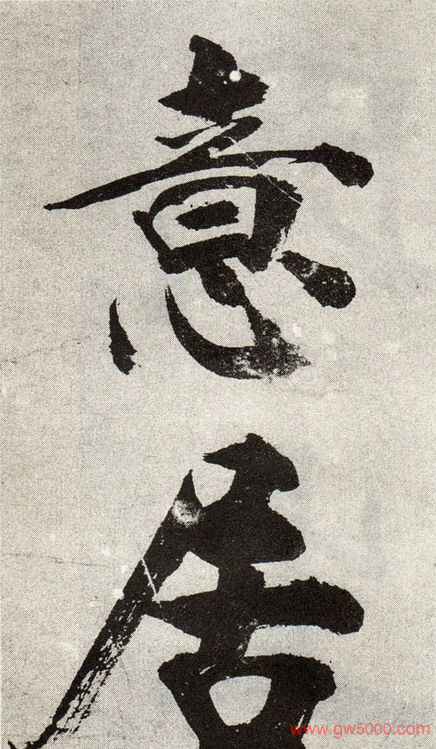 意居
www.gw5000.com